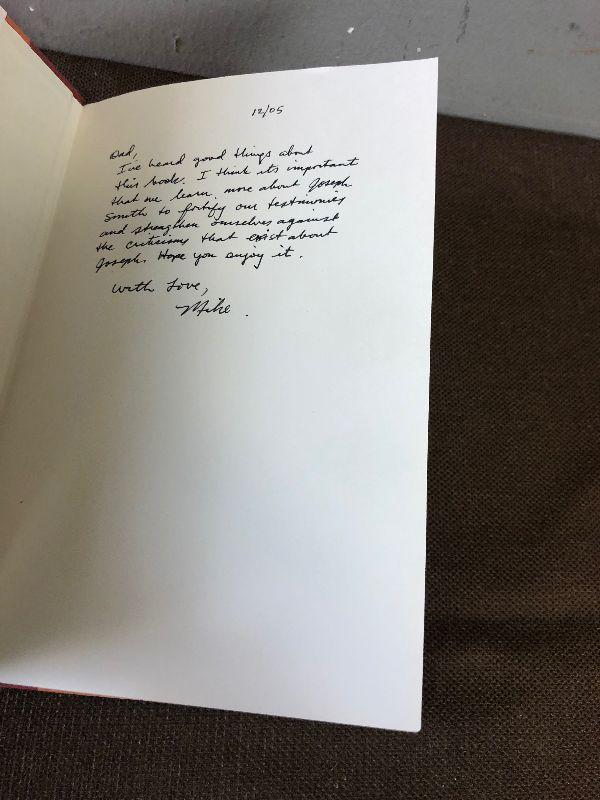 12/05
Dad,
I've heard good things about
this book. I think its important
that we learn more about Joseph
Smith to fortify our testimonies
and strengthen ourselves against
the criticisms that exist about
Joseph. Hope you enjoy it.
With Love,
Mike.